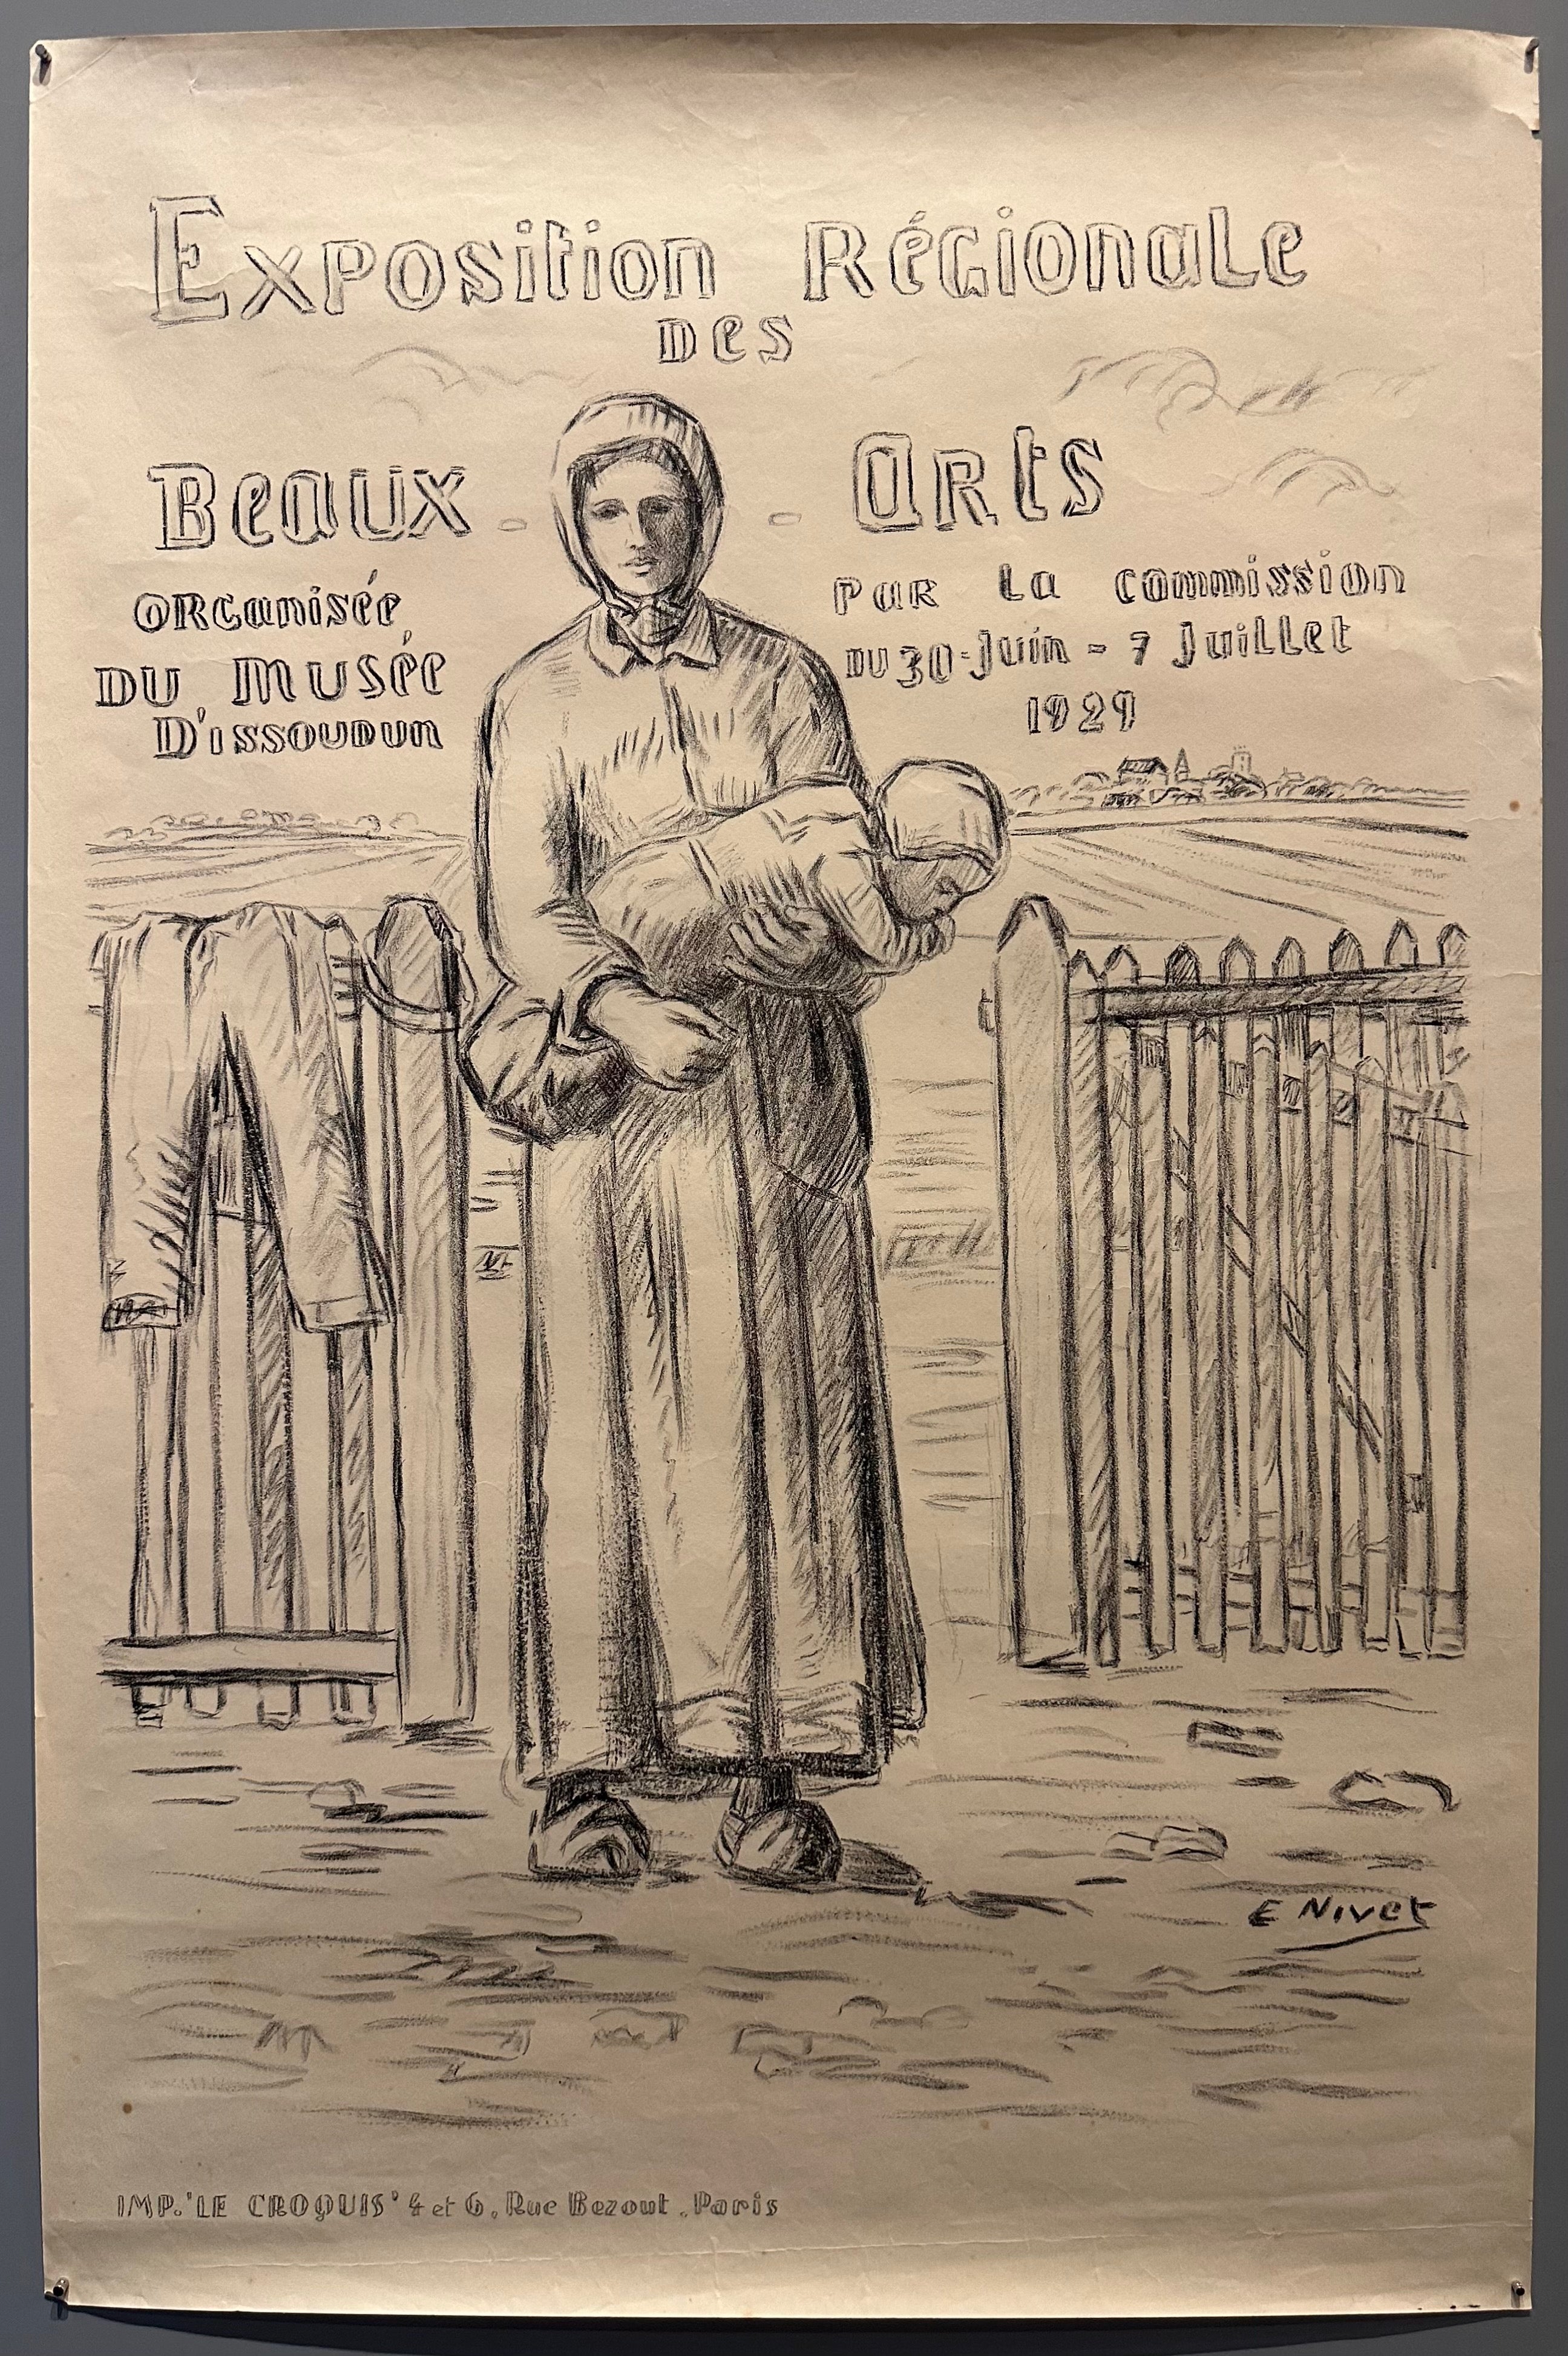 Exposition Régionale
des
Beaux-Arts
organisée par la commission
du musée du 30 Juin - 7 Juillet
D'issoudun 1929
E Nivet
IMP. 'LE CROQUIS' 4 et 6, Rue Bezout. Paris